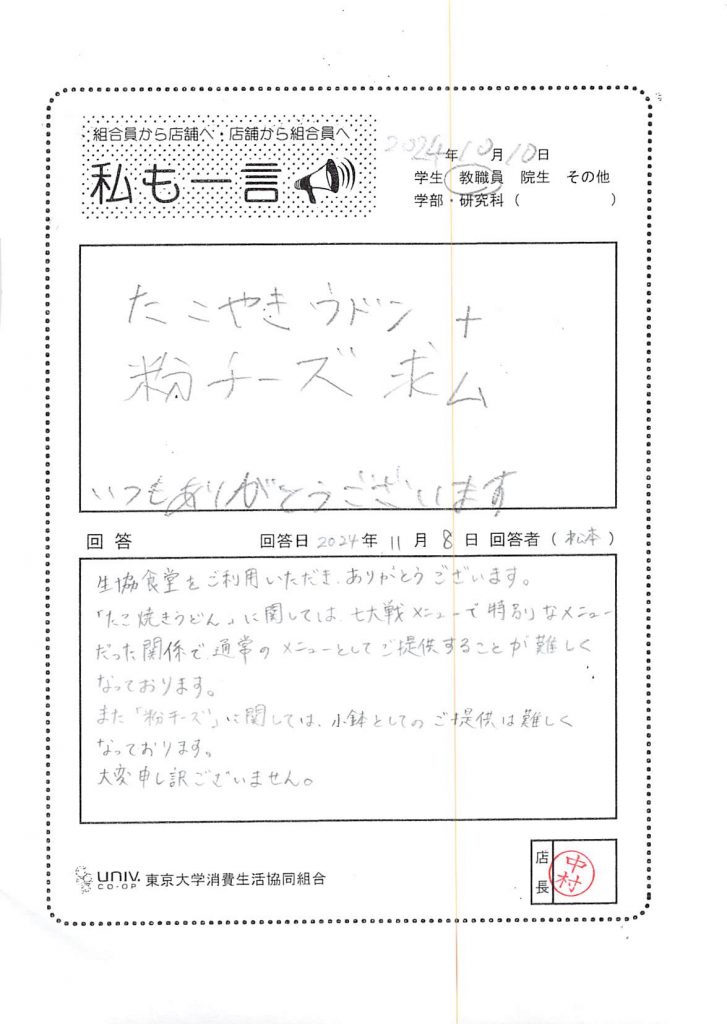 組合員から店舗へ・店舗から組合員へ
私も一言
2024年10月10日
学生 教職員 院生 その他
学部・研究科（ ）
たこやきウドン +
粉チーズ 求ム
いつもありがとうございます
回答 回答日 2024年 11月 8日 回答者（松本）
生協食堂をご利用いただき、ありがとうございます。
「たこ焼きうどん」に関しては、七大戦メニューで特別なメニュー
だった関係で、通常のメニューとしてご提供することが難しく
なっております。
また「粉チーズ」に関しては、小鉢としてのご提供は難しく
なっております。
大変申し訳ございません。
UNIV.
CO-OP
東京大学消費生活協同組合
店長
中村